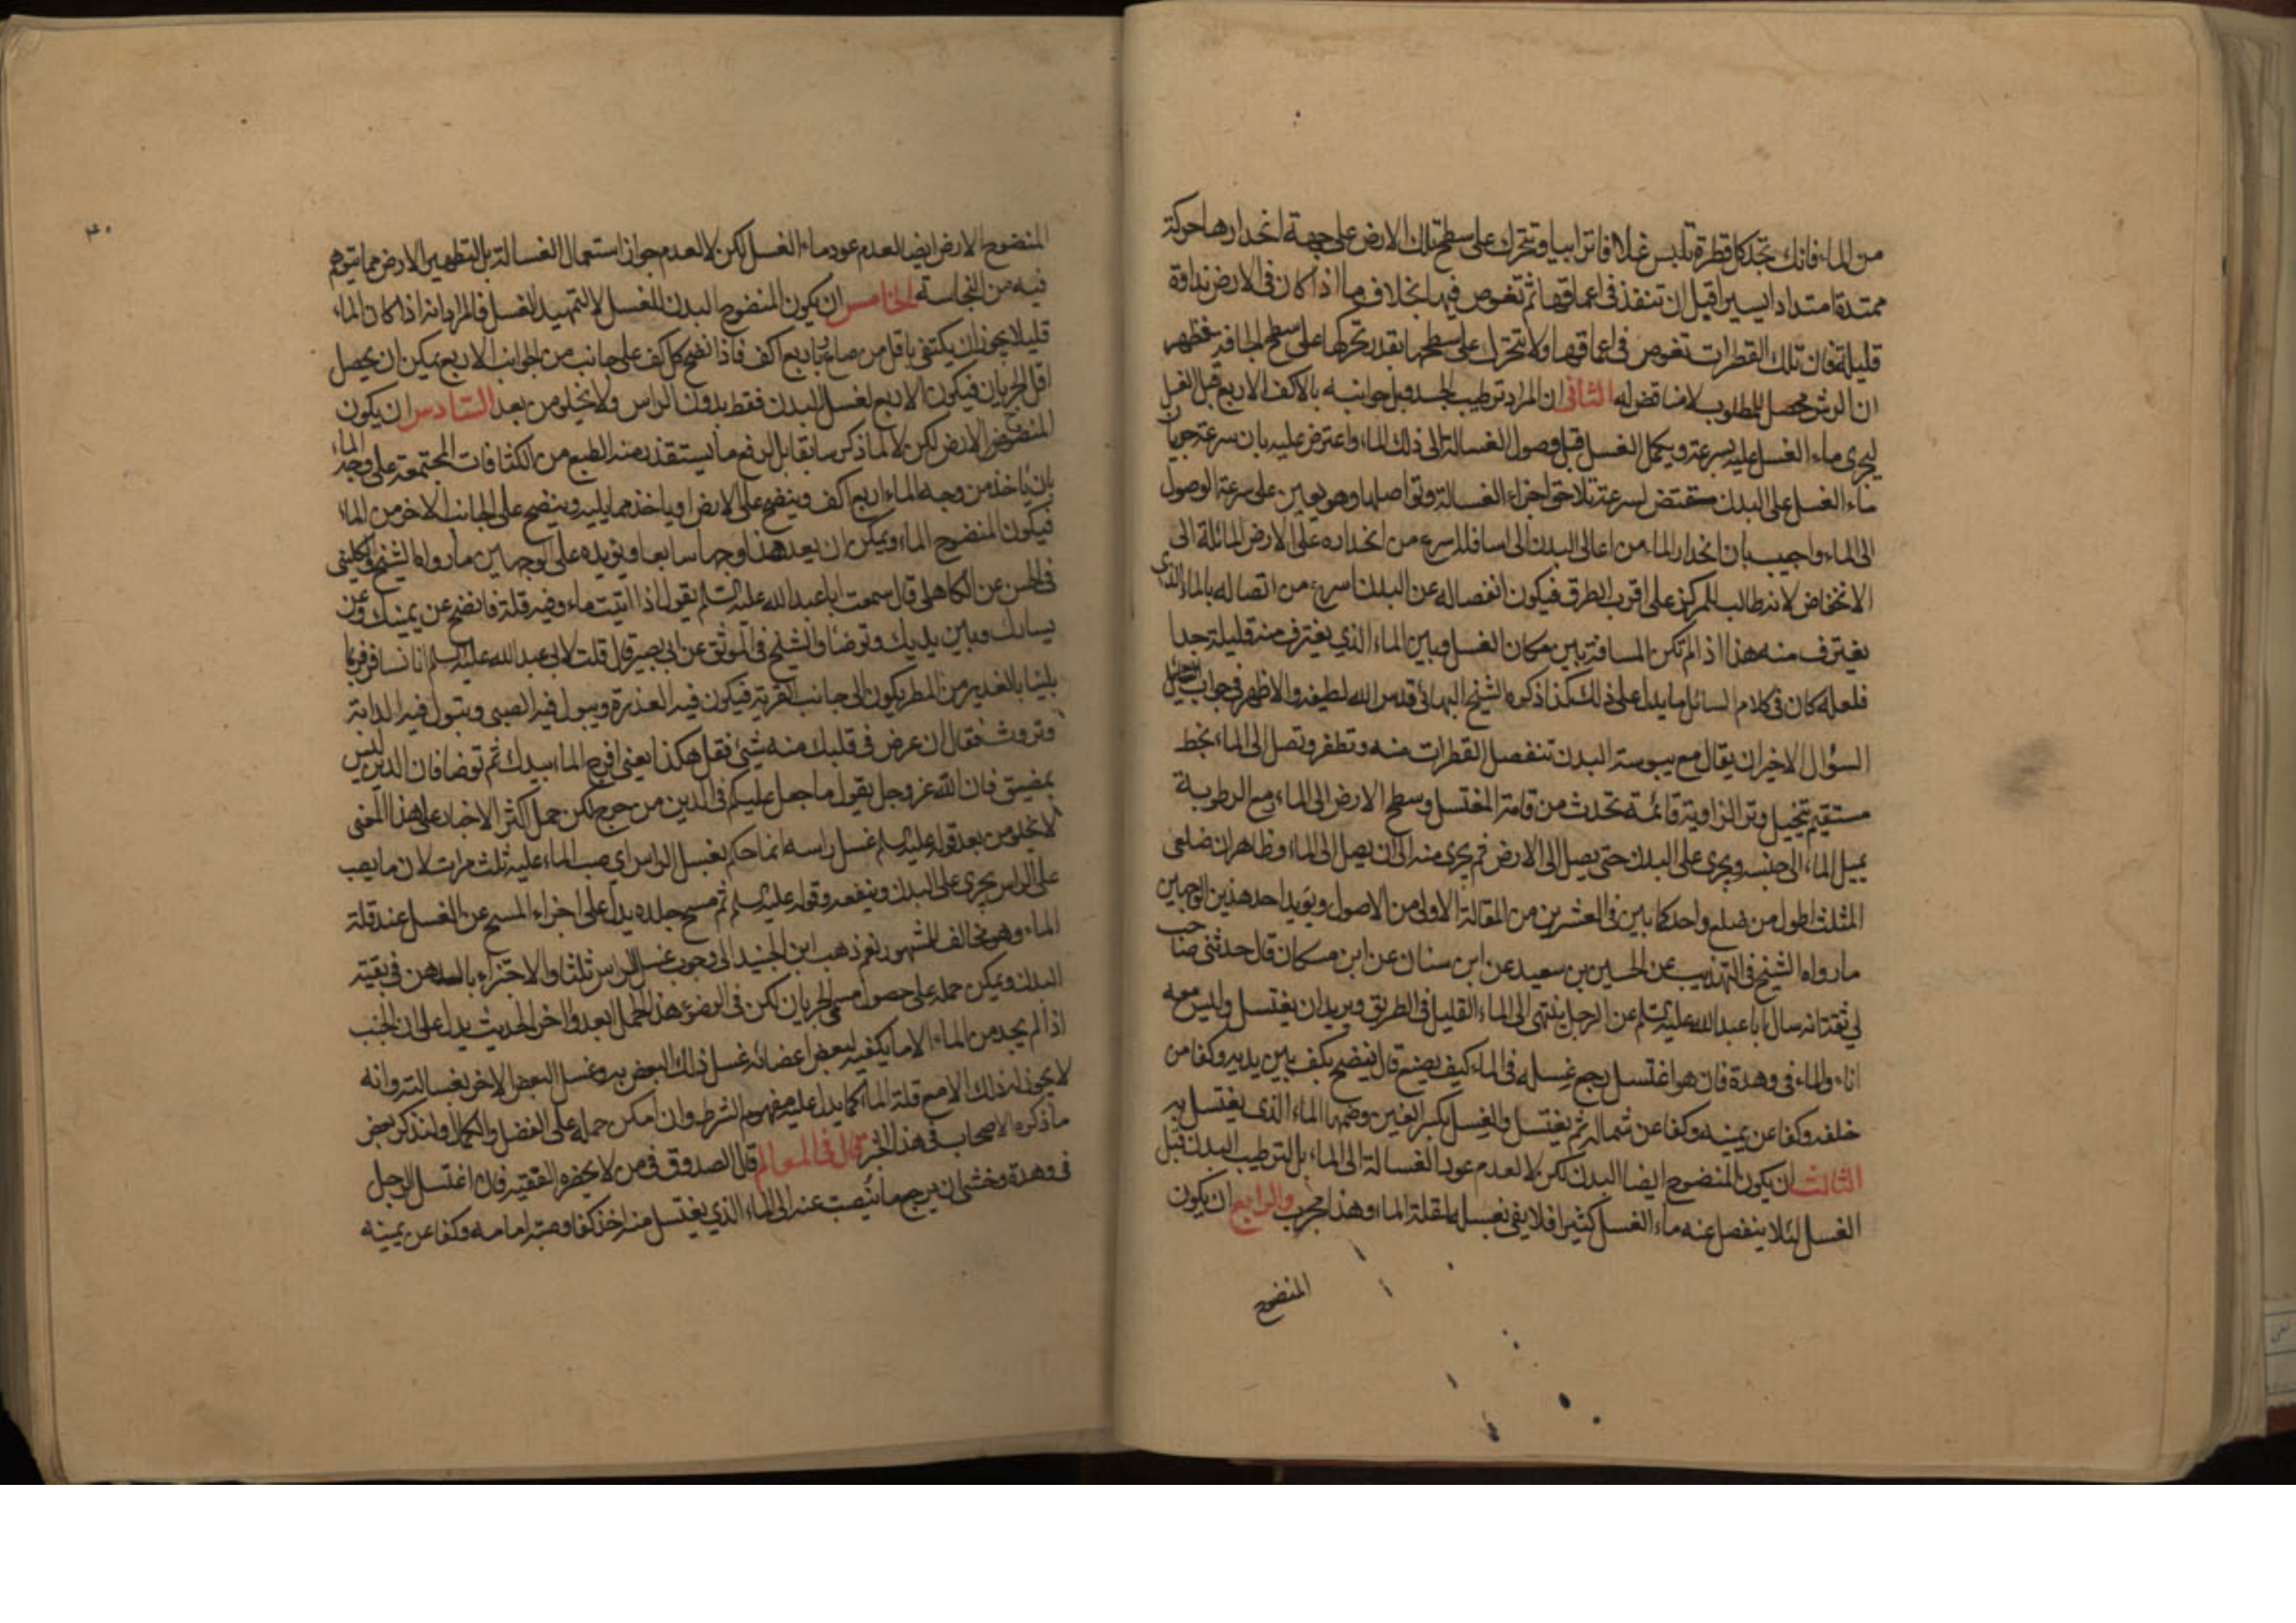 من الماء فانك تجد كل قطرة تلبس غلافا ترابيا وتتحرك على سطح تلك الارض على جهة انحدارها حركة
ممتدة امتدادا يسيرا قبل ان تنفذ في اعماقها ثم تغوص فيها بخلاف ما اذا كان في الارض نداوة
قليلة فان تلك القطرات تغوص في اعماقها ولا تتحرك على سطحها بقدر تحركها على سطح الجافة فظهر
ان الرش محصل للمطلوب لا مناقض له الثاني ان المراد ترطيب الجسد وبل جوانبه بالاكف الاربع قبل الغسل
ليجري ماء الغسل عليه بسرعة ويكمل الغسل قبل وصول الغسالة الى ذلك الماء واعترض عليه بان سرعة جريان
ماء الغسل على البدن مقتض لسرعة تلاحق اجزاء الغسالة وتواصلها وهو يعين على سرعة الوصول
الى الماء واجيب بان انحدار الماء من اعالي البدن الى اسافله اسرع من انحداره على الارض المائلة الى
الانخفاض لانه طالب للمركز على اقرب الطرق فيكون انفصاله عن البدن اسرع من اتصاله بالماء الذي
يغترف منه هذا اذا لم تكن المسافة بين مكان الغسل وبين الماء الذي يغترف منه قليلة جدا
فلعله كان في كلام السائل ما يدل على ذلك كذا ذكره الشيخ البهائي قدس الله لطيفه والاظهر في جواب
السؤال الاخير ان يقال مع يبوسة البدن تنفصل القطرات منه وتطفر وتصل الى الماء بخط
مستقيم تتخيل وتر الزاوية قائمة تحدث من قامة المغتسل وسطح الارض الى الماء ومع الرطوبة
يميل الماء الى جنسه ويجري على البدن حتى يصل الى الارض ثم يجري منه الى ان يصل الى الماء وظاهر ان ضلعي
المثلث اطول من ضلع واحد كما بين في العشرين من المقالة الاولى من الاصول ويؤيد احد هذين الوجهين
ما رواه الشيخ في التهذيب عن الحسين بن سعيد عن ابن سنان عن ابن مسكان قال حدثني صاحب
لي ثقة انه سال ابا عبد الله عليه السلم عن الرجل ينتهي الى الماء القليل في الطريق ويريد ان يغتسل وليس معه
اناء والماء في وهدة فان هو اغتسل رجع غسله في الماء كيف يصنع قال ينضح بكف بين يديه وكفا من
خلفه وكفا عن يمينه وكفا عن شماله ثم يغتسل والغسل بكسر الغين وضمها الماء الذي يغتسل به
الثالث ان يكون المنضوح ايضا البدن لكن لا لعدم عود الغسالة الى الماء بل لترطيب البدن قبل
الغسل لئلا ينفصل عنه ماء الغسل كثيرا فلا يفي بغسله لقلة الماء وهذا مجرب والرابع ان يكون
المنضوح
المنضوح الارض ايضا لعدم عود ماء الغسل لكن لا لعدم جواز استعمال الغسالة بل لتطهير الارض مما يتوهم
فيه من النجاسة الخامس ان يكون المنضوح البدن للغسل لا لتمهيد الغسل فالمراد انه اذا كان الماء
قليلا يجوز ان يكتفي باقل من صاع باربع اكف فاذا نضح كل كف على جانب من الجوانب الاربع يمكن ان يحصل
اقل الجريان فيكون الاربع لغسل البدن فقط بدون الراس ولا يخلو من بعد السادس ان يكون
المنضوح الارض لكن لا لما ذكر سابقا بل لرفع ما يستقذر منه الطبع من الكثافات المجتمعة على وجه الماء
بان ياخذ من وجه الماء اربع اكف وينضح على الارض او ياخذ مما يليه وينضح على الجانب الاخر من الماء
فيكون المنضوح الماء ويمكن ان يعد هذا وجها سابعا ويؤيده على الوجهين ما رواه الشيخ والكليني
في الحسن عن الكاهلي قال سمعت ابا عبد الله عليه السلم يقول اذا اتيت ماء وفيه قلة فانضح عن يمينك وعن
يسارك وبين يديك وتوضا والشيخ في الموثق عن ابي بصير قال قلت لابي عبد الله عليه السلم انا نسافر فربما
بلينا بالغدير من المطر يكون الى جانب القرية فيكون فيه العذرة ويبول فيه الصبي وتبول فيه الدابة
وتروث فقال ان عرض في قلبك منه شيئ فقل هكذا يعني افرج الماء بيدك ثم توضا فان الدين ليس
بمضيق فان الله عز وجل يقول ما جعل عليكم في الدين من حرج لكن حمل اكثر الاخبار على هذا المعنى
لا يخلو من بعد قوله عليه السلم غسل راسه انما حكم بغسل الراس اي صب الماء عليه ثلث مرات لان ما يصب
على الراس يجري على البدن وينفعه وقوله عليه السلم ثم مسح جلده يدل على اجزاء المسح عن الغسل عند قلة
الماء وهو مخالف للمشهور نعم ذهب ابن الجنيد الى وجوب غسل الراس ثلثا والاجتزاء بالدهن في بقية
البدن ويمكن حمله على حصول مسمى الجريان لكن في الوضوء هذا الحمل ابعد واخر الحديث يدل على ان الجنب
اذا لم يجد من الماء الا ما يكفيه لبعض اعضائه غسل ذلك البعض به وغسل البعض الاخر بغسالته وانه
لا يجوز له ذلك الا مع قلة الماء كما يدل عليه مفهوم الشرط وان امكن حمله على الفضل والكمال ولنذكر بعض
ما ذكره الاصحاب في هذا الخبر قال في المعالم قال الصدوق في من لا يحضره الفقيه فان اغتسل الرجل
في وهدة وخشي ان يرجع ما ينصب عنه الى الماء الذي يغتسل منه اخذ كفا وصبه امامه وكفا عن يمينه